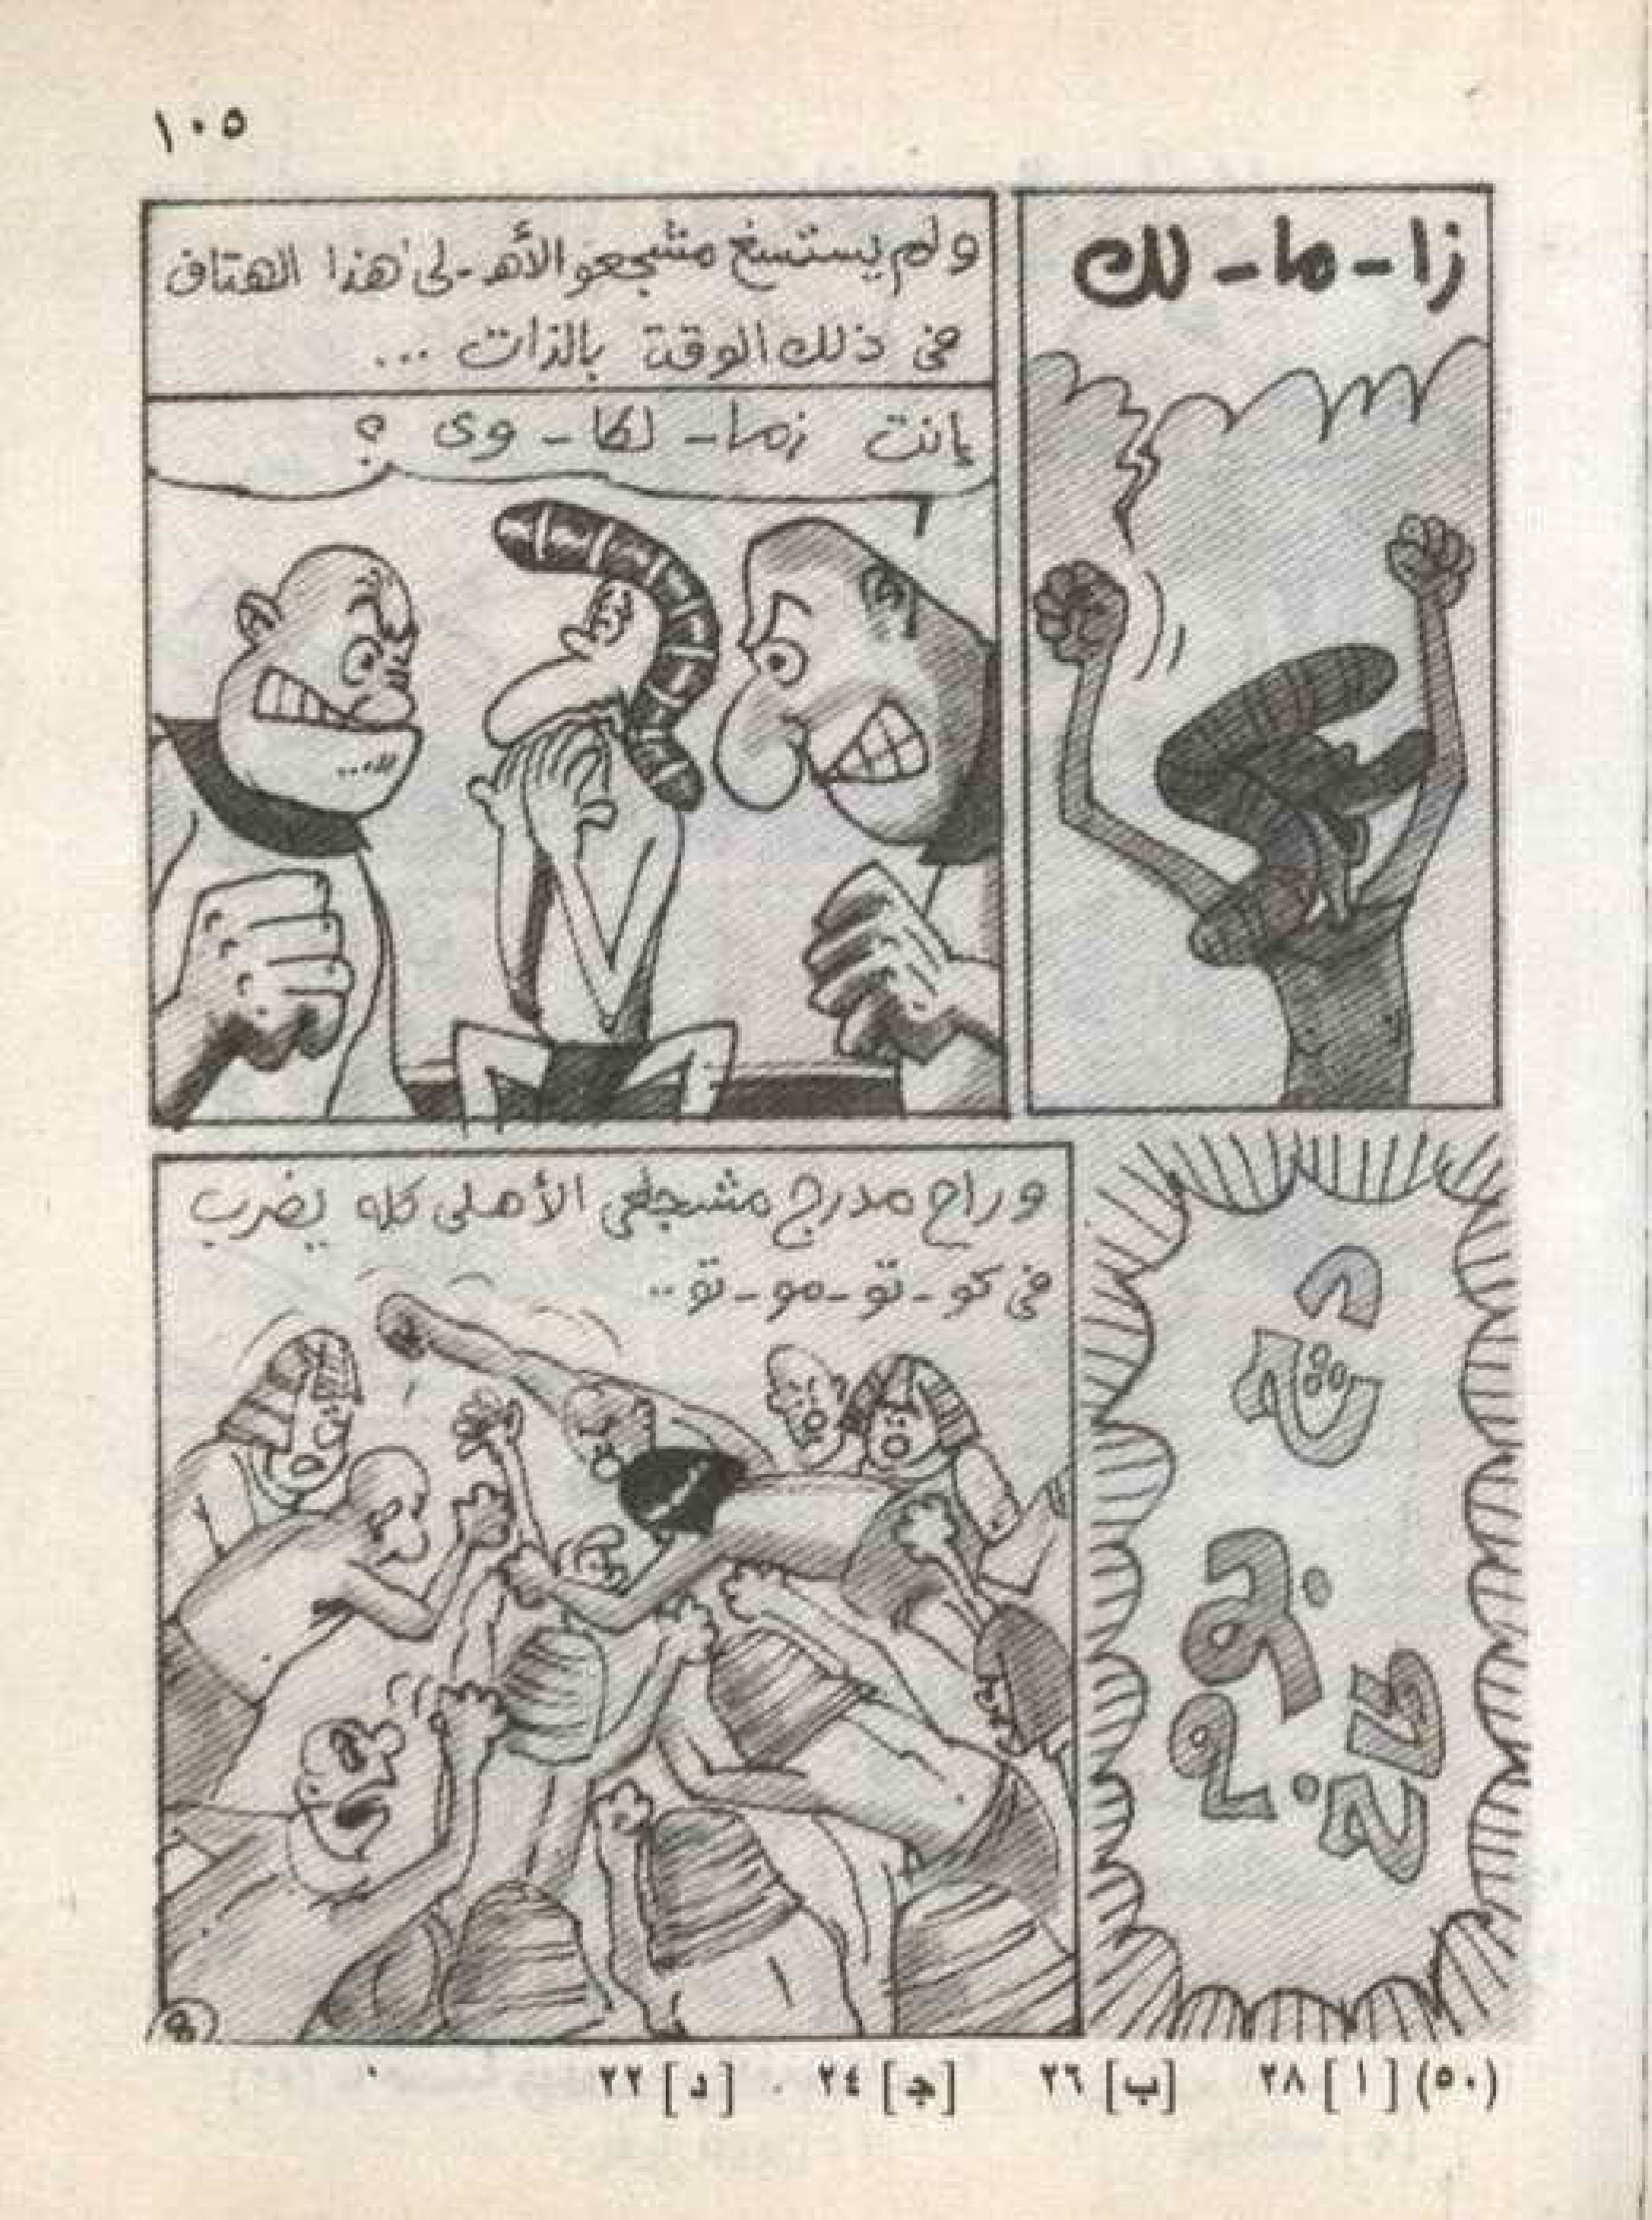 ١٠٥
زا - ما - لك
ولم يستسغ مشجعو الأهـ - لى هذا الهتاف
فى ذلك الوقت بالذات ...
إنت زما - لكا - وى ؟
وراح مدرج مشجعى الأهلى كله يضرب
فى كو - تو - مو - تو ..
(٥٠) [ ا ] ٢٨ [ب] ٢٦ [جـ] ٢٤ [د] ٢٢